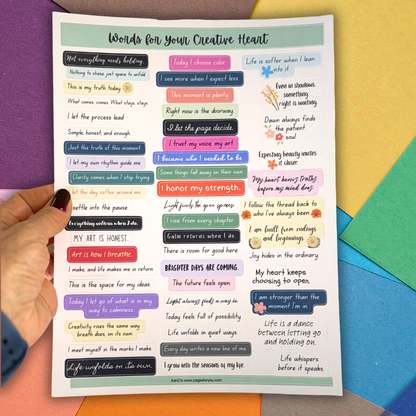 Words for Your Creative Heart
Not everything needs holding.
Nothing to chase, just space to unfold
This is my truth today
What comes, comes. What stays, stays.
I let the process lead
Simple, honest, and enough
Just the truth of this moment
I let my own rhythm guide me
Clarity comes when I stop trying
let the day soften around me
settle into the pause
Everything softens when I do.
MY ART IS HONEST.
Art is how I breathe.
I make, and life makes me in return
This is the space for my ideas
Today I let go of what is in my
way to calmness
Creativity rises the same way
breath does, on its own.
I meet myself in the marks I make.
Life unfolds on its own.
Today I choose color
I see more when I expect less
This moment is plenty
Right now is the doorway
I let the page decide.
I trust my voice, my art
I became who I needed to be.
Some things fall away on their own
I honor my strength.
Light finds the open spaces
I rise from every chapter.
Calm returns when I do.
There is room for good here
BRIGHTER DAYS ARE COMING.
The future feels open.
Light always finds a way in.
Today feels full of possibility
Life unfolds in quiet ways
Every day writes a new line of me
I grow into the seasons of my life.
Life is softer when I lean
into it
Even in shadows,
something
right is waiting
Dawn always finds
the patient
soul
Expecting beauty invites
it closer
My heart knows truths
before my mind does.
I follow the thread back to
who I've always been
I am built from endings
and beginnings
Joy hides in the ordinary.
My heart keeps
choosing to open.
I am stronger than the
moment I'm in
Life is a dance
between letting go
and holding on.
Life whispers
before it speaks
www.pagesforyou.com